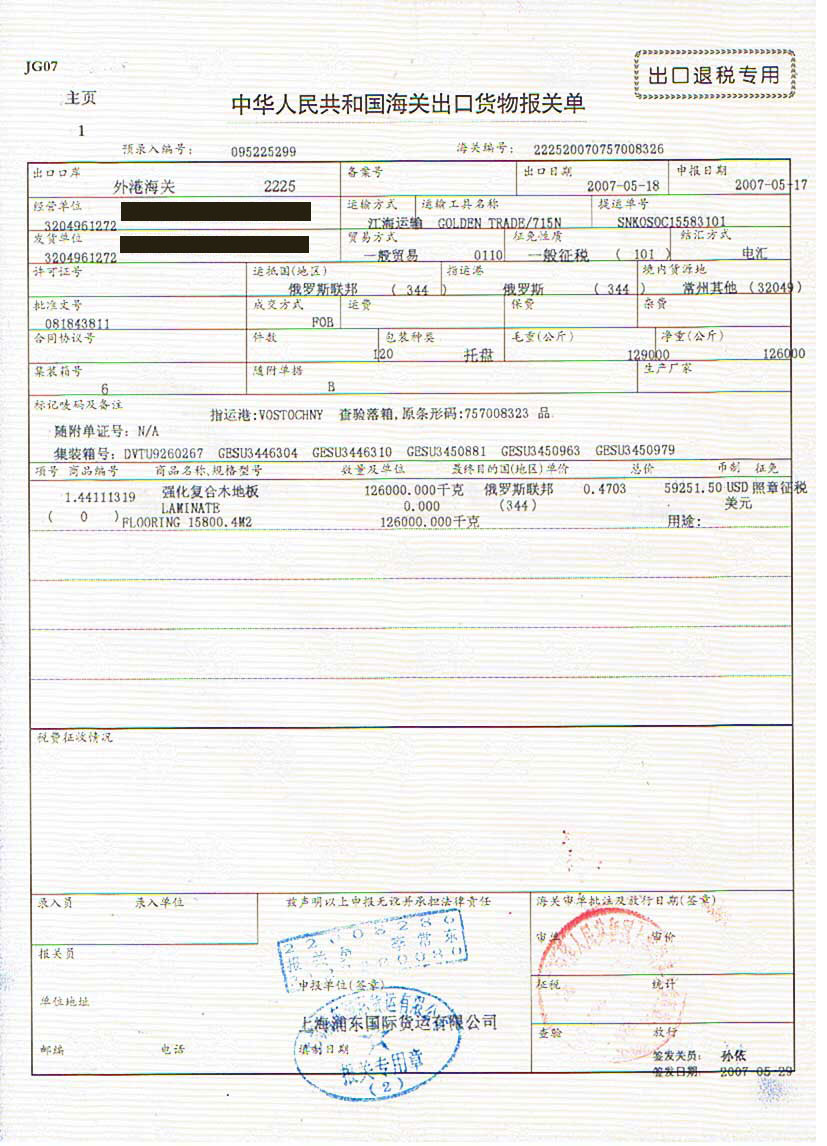 JG07
出口退税专用
主页
中华人民共和国海关出口货物报关单
1
预录入编号: 095225299 海关编号: 222520070757008326
出口口岸 备案号 出口日期 申报日期
外港海关 2225 2007-05-18 2007-05-17
经营单位 运输方式 运输工具名称 提运单号
3204961272 江海运输 GOLDEN TRADE/715N SNKOSOC15583101
发货单位 贸易方式 征免性质 结汇方式
3204961272 一般贸易 0110 一般征税 ( 101 ) 电汇
许可证号 运抵国(地区) 指运港 境内货源地
俄罗斯联邦 ( 344 ) 俄罗斯 ( 344 ) 常州其他 (32049)
批准文号 成交方式 运费 保费 杂费
081843811 FOB
合同协议号 件数 包装种类 毛重(公斤) 净重(公斤)
120 托盘 129000 126000
集装箱号 随附单据 生产厂家
6 B
标记唛码及备注
指运港:VOSTOCHNY 查验落箱,原条形码:757008323 品
随附单证号: N/A
集装箱号: DVTU9260267 GESU3446304 GESU3446310 GESU3450881 GESU3450963 GESU3450979
项号 商品编号 商品名称,规格型号 数量及单位 最终目的国(地区)单价 总价 币制 征免
1.44111319 强化复合木地板 126000.000千克 俄罗斯联邦 0.4703 59251.50 USD 照章征税
LAMINATE 0.000 (344) 美元
( 0 ) FLOORING 15800.4M2 126000.000千克 用途:
税费征收情况
录入员 录入单位 兹声明以上申报无讹并承担法律责任 海关审单批注及放行日期(签章)
22008286
报关员 李常东
审单 审价
报关员
申报单位(签章) 征税 统计
单位地址
上海浦东国际货运有限公司
查验 放行
邮编 电话 填制日期
报关专用章
(2)
签发关员: 孙依
签发日期: 2007-05-29